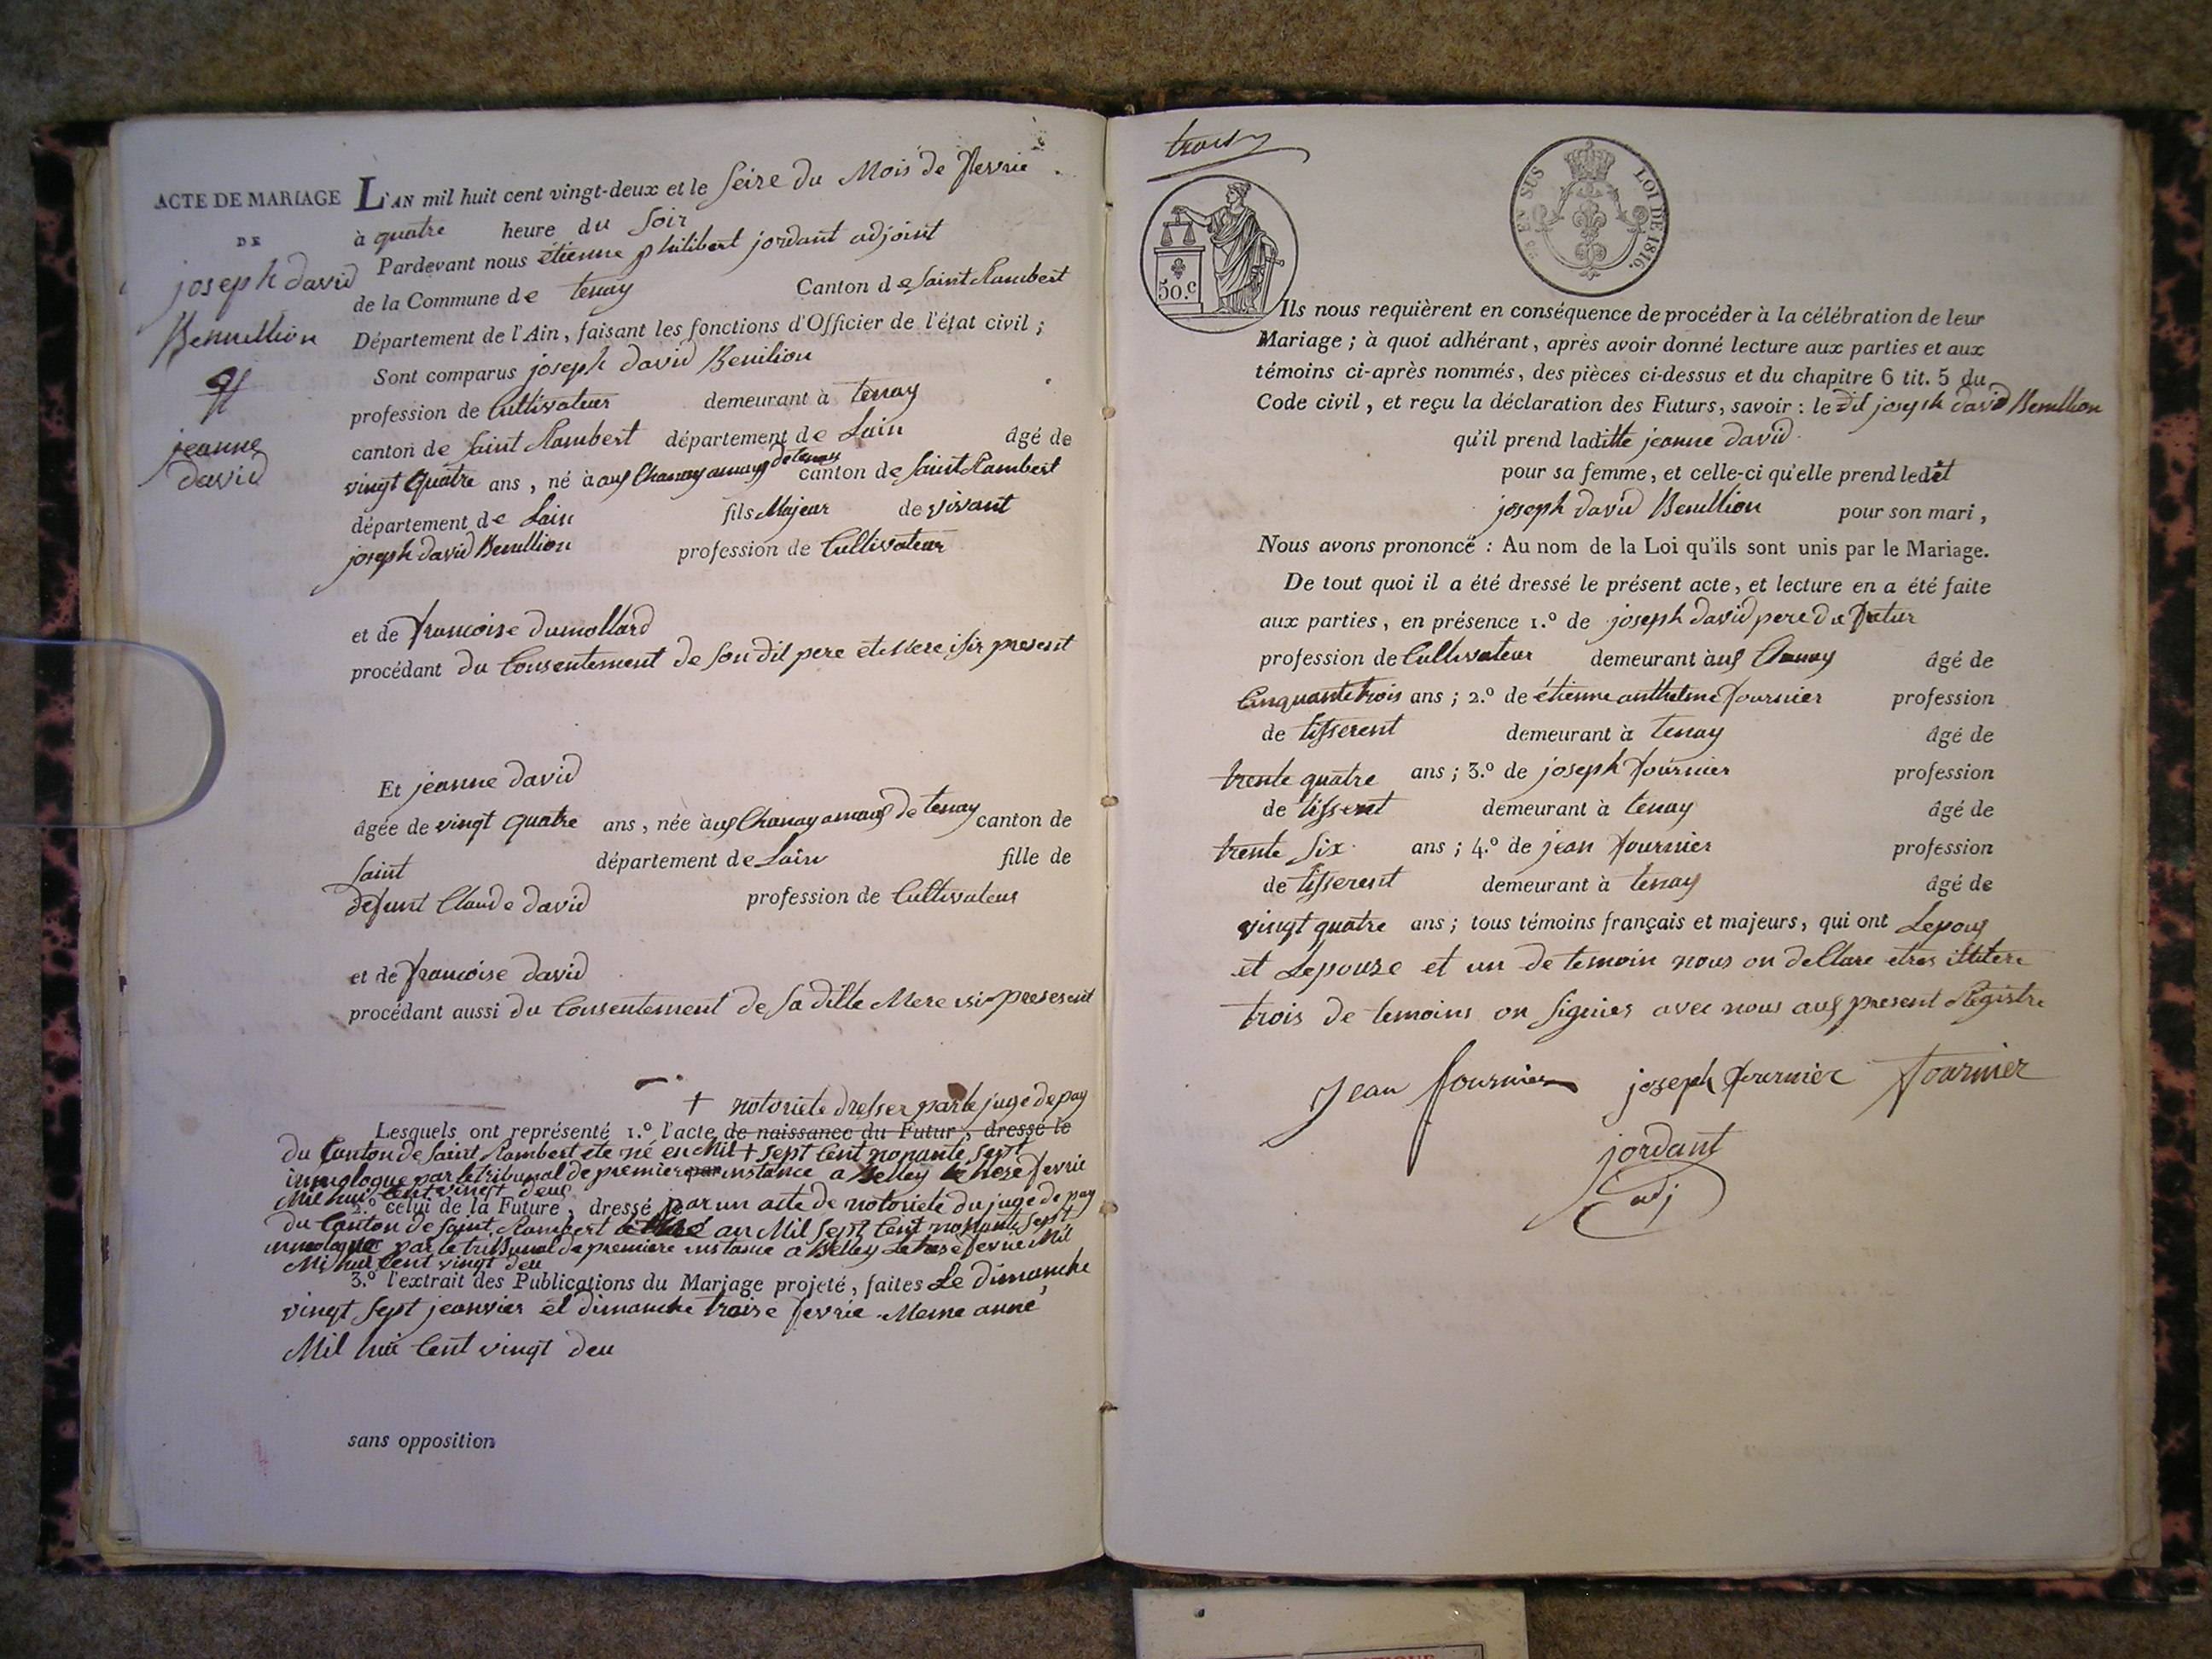 ACTE DE MARIAGE
DE
joseph david
Benullion
et
jeanne
david
L'AN mil huit cent vingt-deux et le seize du Mois de fevrie
à quatre heure du soir
Pardevant nous étienne philibert jordant adjoint
de la Commune de tenay Canton de saint Rambert
Département de l'Ain, faisant les fonctions d'Officier de l'état civil ;
Sont comparus joseph david Benilion
profession de Cultivateur demeurant à tenay
canton de saint Rambert département de Lain âgé de
vingt quatre ans, né à aux Chanay amaux de tenay canton de saint Rambert
département de Lain fils Majeur de vivant
joseph david Benullion profession de Cultivateur
et de francoise dumollard
procédant du Consentement de son dit pere et Mere isir present
Et jeanne david
âgée de vingt quatre ans, née à aux Chanay amaux de tenay canton de
saint département de Lain fille de
defunt Claude david profession de Cultivateur
et de francoise david
procédant aussi du Consentement de sa ditte Mere isi presesent
+ notoriete dresser par le juge de pay
Lesquels ont représenté 1.º l'acte de naissance du Futur, dressé le
du Canton de saint Rambert ete né en Mil + sept Cent nonante sept
inmologue par le tribunal de premiere par instance a Belley le fevrie
Mil hui Cent vingt deux
2.º celui de la Future, dressé le par un acte de notoriete du juge de pay
du Canton de saint Rambert au Mil sept Cent nonante sept
inmologue par le tribunal de premiere instance a Belley Le fevrie Mil
Mil hui Cent vingt deu
3.º l'extrait des Publications du Mariage projeté, faites Le dimanche
vingt sept jeanvier et dimanche troise fevrie Meme anné
Mil hui Cent vingt deu
sans opposition
trois
50.c
EN SUS
LOI DE 1816.
Ils nous requièrent en conséquence de procéder à la célébration de leur
Mariage ; à quoi adhérant, après avoir donné lecture aux parties et aux
témoins ci-après nommés, des pièces ci-dessus et du chapitre 6 tit. 5 du
Code civil, et reçu la déclaration des Futurs, savoir : le dit joseph david Benullion
qu'il prend laditte jeanne david
pour sa femme, et celle-ci qu'elle prend ledit
joseph david Benullion pour son mari,
Nous avons prononcé : Au nom de la Loi qu'ils sont unis par le Mariage.
De tout quoi il a été dressé le présent acte, et lecture en a été faite
aux parties, en présence 1.º de joseph david pere du futur
profession de Cultivateur demeurant à aux Chanay âgé de
Cinquante trois ans ; 2.º de étienne anthelme fournier profession
de tisserent demeurant à tenay âgé de
trente quatre ans ; 3.º de joseph fournier profession
de tisserent demeurant à tenay âgé de
trente six ans ; 4.º de jean fournier profession
de tisserent demeurant à tenay âgé de
vingt quatre ans ; tous témoins français et majeurs, qui ont Lepoux
et Lepouze et un de temoin nous on dellare etres illitere
trois de temoins on signies avec nous aux present Registre
Jean fournier joseph fournier fournier
jordant
adj